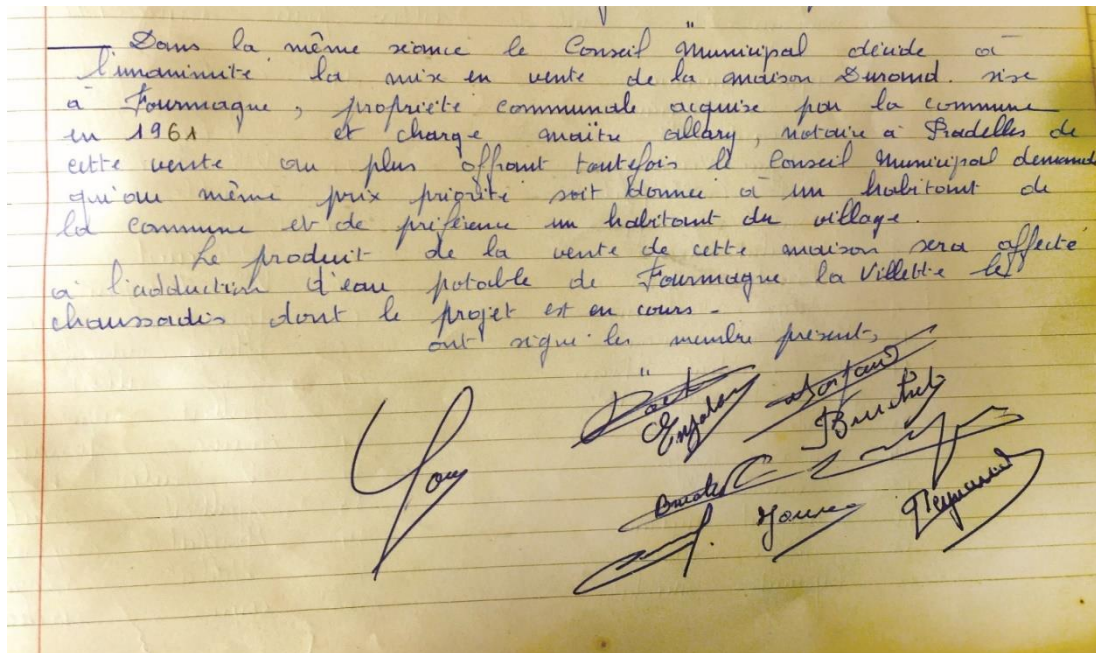 Dans la même séance le Conseil Municipal décide à
l'unanimité la mise en vente de la maison Durand. sise
à Fourmagne, propriété communale acquise par la commune
en 1961 et charge maître allary, notaire à Pradelles de
cette vente au plus offrant toutefois le Conseil Municipal demand
qu'au même prix priorité soit donnée à un habitant de
la commune et de préférence un habitant du village.
Le produit de la vente de cette maison sera affecté
à l'adduction d'eau potable de Fourmagne la Villette les
chaussadis dont le projet est en cours -
ont signé les membre présents,
Enjalon